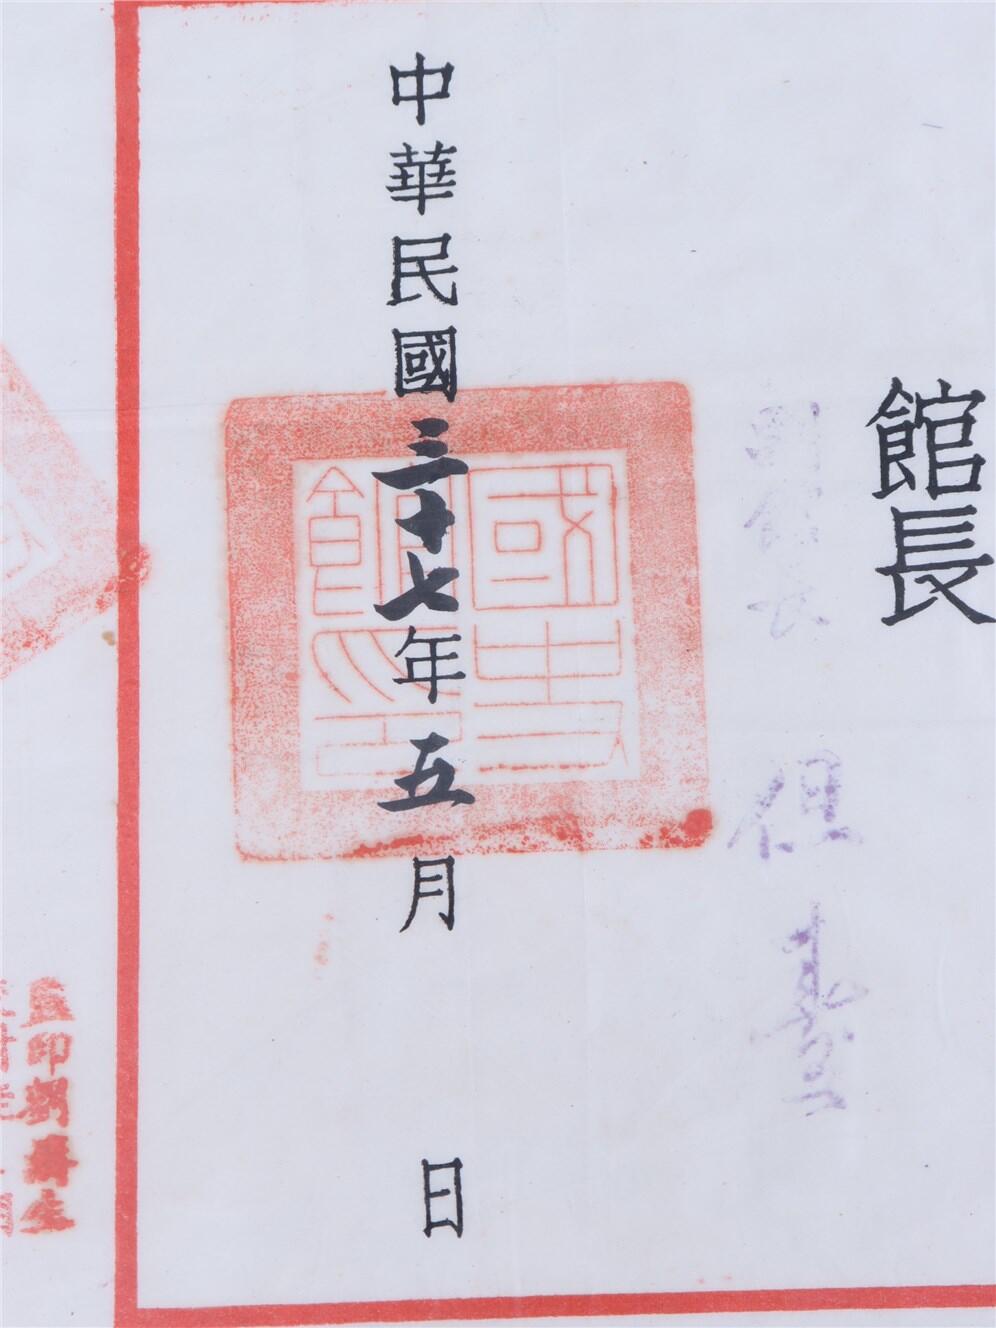 館長
副館長 但燾
中華民國三十七年五月 日
國史館印
監印劉